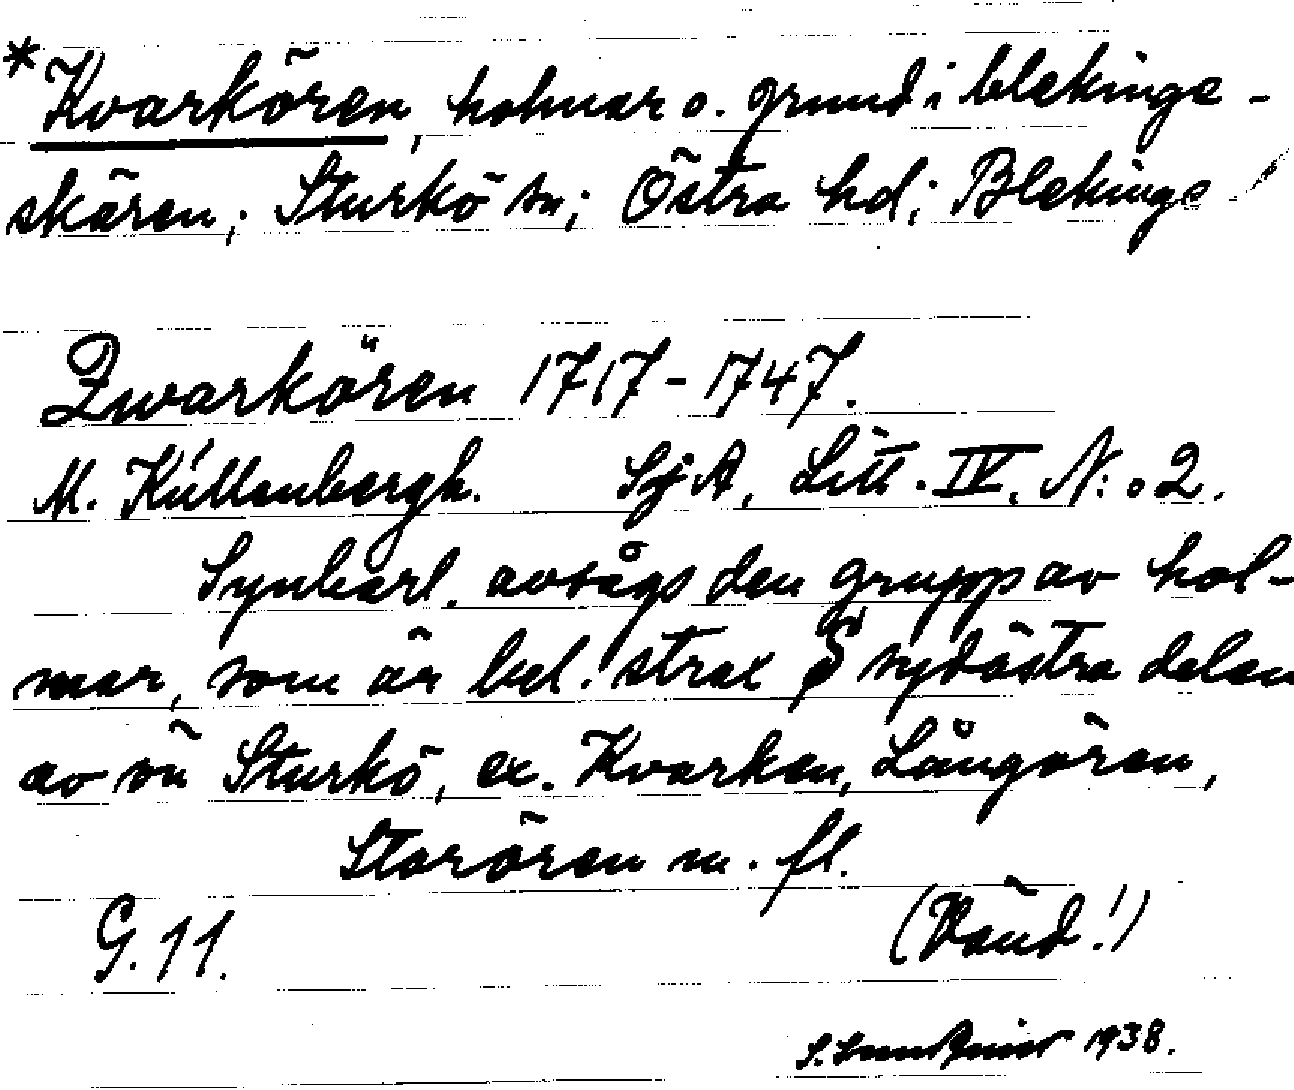 *Kvarkören, holmar o. grund i blekinge-
skären; Sturkö sn; Östra hd; Blekinge
Qwarkören 1717-1747.
M. Küllenbergh. SjA, Litt. IV. N:o 2.
Synbarl. avsågs den grupp av hol-
mar, som är bel. strax S sydöstra delen
av ön Sturkö, ex. Kvarken, Långören,
Storören m. fl.
G. 11. (Vänd!)
S. 1938.